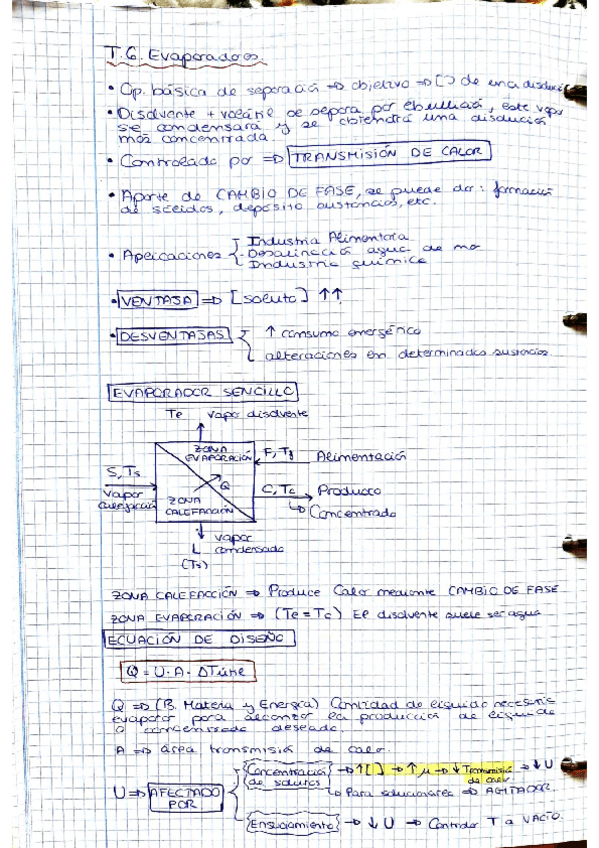 T.6. Evaporadores.
• Op. básica de separación ⇒ objetivo ⇒ [ ] de una disoluci
• Disolvente + volátil se separa por ebullición, este vapor
se condensará y se obtendrá una disolución
más concentrada.
• Controlado por ⇒ TRANSMISIÓN DE CALOR
• Aporte de CAMBIO DE FASE, se puede dar: formación
de sólidos, depósito sustancias, etc.
• Aplicaciones
Industria Alimentaria
- Desalinización agua de mar
Industria química
• VENTAJA ⇒ [soluto] ↑↑
• DESVENTAJAS
↑ consumo energético
alteraciones en determinadas sustancias.
EVAPORADOR SENCILLO
Te vapor disolvente
ZONA
EVAPORACIÓN
F, Tf Alimentación
S, Ts
vapor
calefacción
Q
ZONA
CALEFACCIÓN
C, Tc → Producto
↳ Concentrado
↓ vapor
L condensado
(Ts)
ZONA CALEFACCIÓN ⇒ Produce Calor mediante CAMBIO DE FASE
ZONA EVAPORACIÓN ⇒ (Te = Tc) El disolvente suele ser agua
ECUACIÓN DE DISEÑO
Q = U · A · ΔTútil
Q ⇒ (B. Materia y Energía) Cantidad de líquido necesario
evaporar para alcanzar la producción de líquido
o concentrado deseado.
A ⇒ área transmisión de calor.
U ⇒ AFECTADO
POR
Concentración
de solutos
→ ↑[ ] → ↑μ → ↓ Transmisión
de calor → ↓ U
↳ Para solucionarlo ⇒ AGITADOR.
Ensuciamiento → ↓ U → Controlar T a VACÍO.